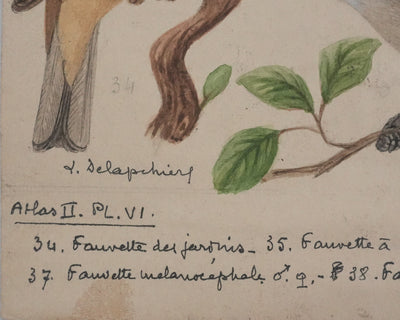 34
L. Delapchier
Atlas II. PL. VI.
34. Fauvette des jardins_ 35. Fauvette à
37. Fauvette mélanocéphale ♂ ♀,- 38. Fa